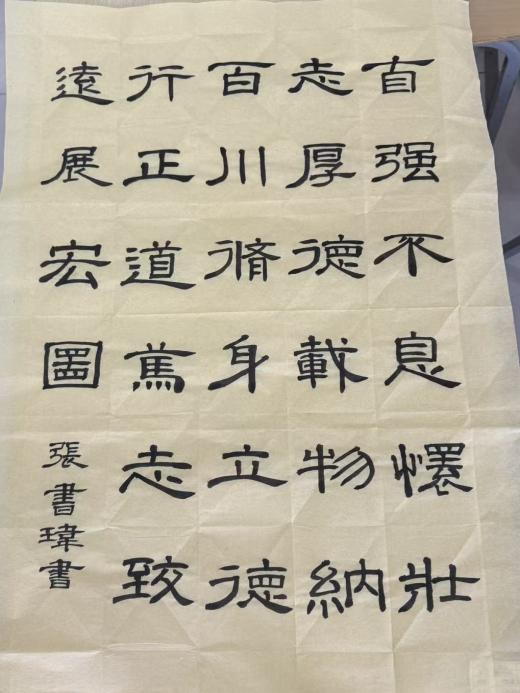 自强不息懷壯
志厚德載物納
百川脩身立德
行正道篤志致
遠展宏圖
張書瑋書